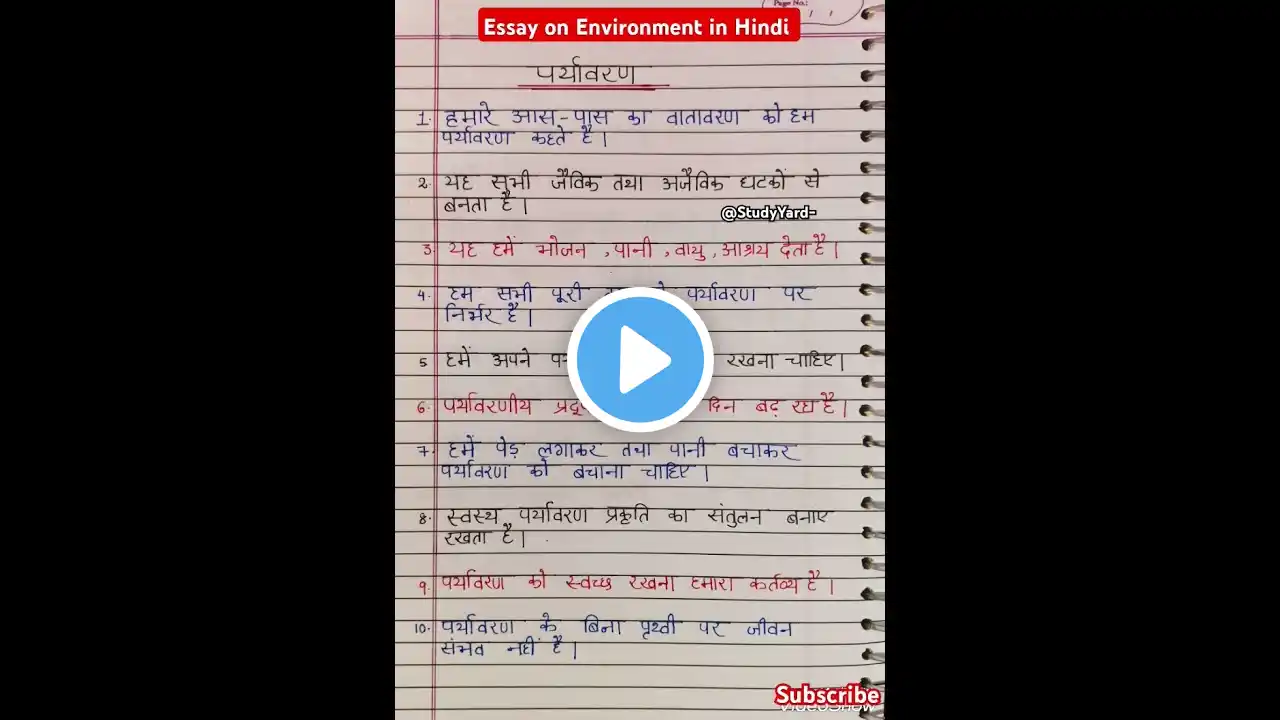 Page No.:
Essay on Environment in Hindi
पर्यावरण
1. हमारे आस-पास का वातावरण को हम
पर्यावरण कहते हैं।
2. यह सभी जैविक तथा अजैविक घटकों से
बनता है।
@StudyYard-
3. यह हमें भोजन, पानी, वायु, आश्रय देता है।
4. हम सभी पूरी पर्यावरण पर
निर्भर है।
5 हमें अपने रखना चाहिए।
6. पर्यावरणीय दिन बढ़ रहा है।
7. हमें पेड़ लगाकर तथा पानी बचाकर
पर्यावरण को बचाना चाहिए।
8. स्वस्थ पर्यावरण प्रकृति का संतुलन बनाए
रखता है।
9. पर्यावरण को स्वच्छ रखना हमारा कर्तव्य है।
10. पर्यावरण के बिना पृथ्वी पर जीवन
संभव नहीं है।
Subscribe